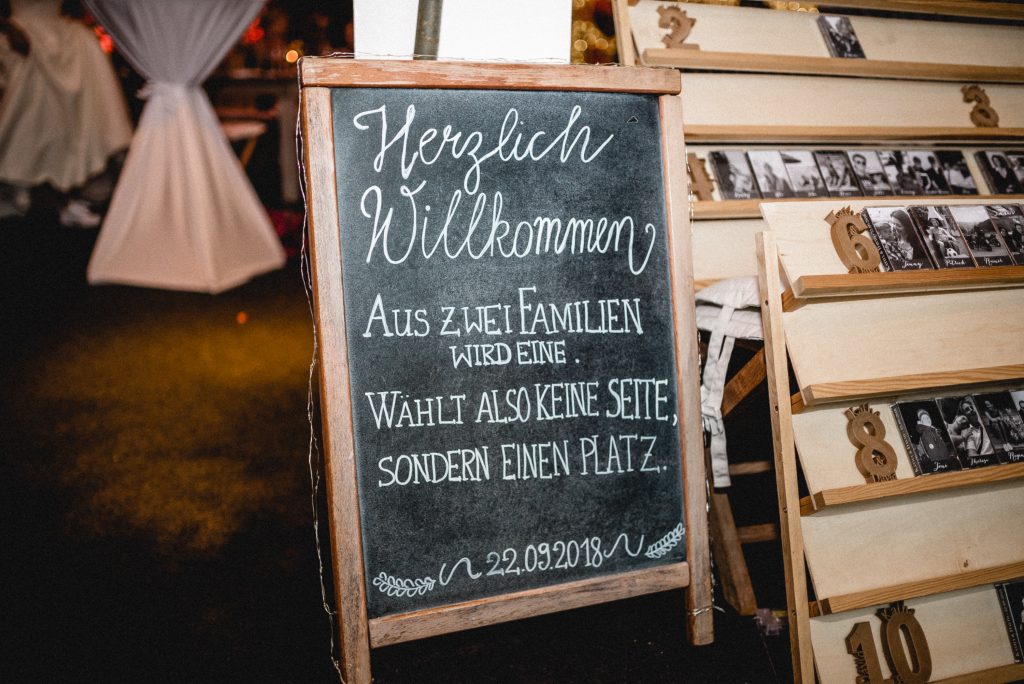 Herzlich
Willkommen
Aus zwei Familien
wird eine.
Wählt also keine Seite,
sondern einen Platz.
22.09.2018
2
3
4
6
Jenny Patrick
8
Jens Theresa
10